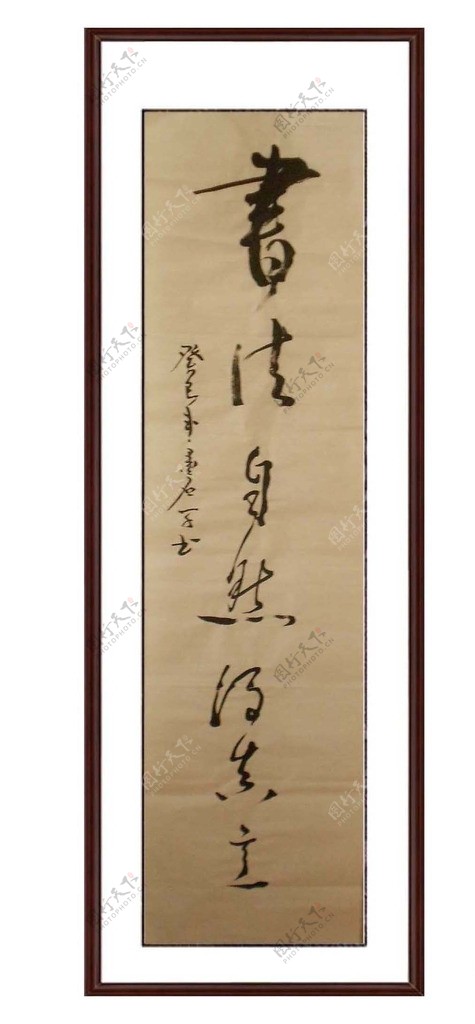 書法自然得真意
癸巳年墨石一子书
图行天下
PHOTOPHOTO.CN